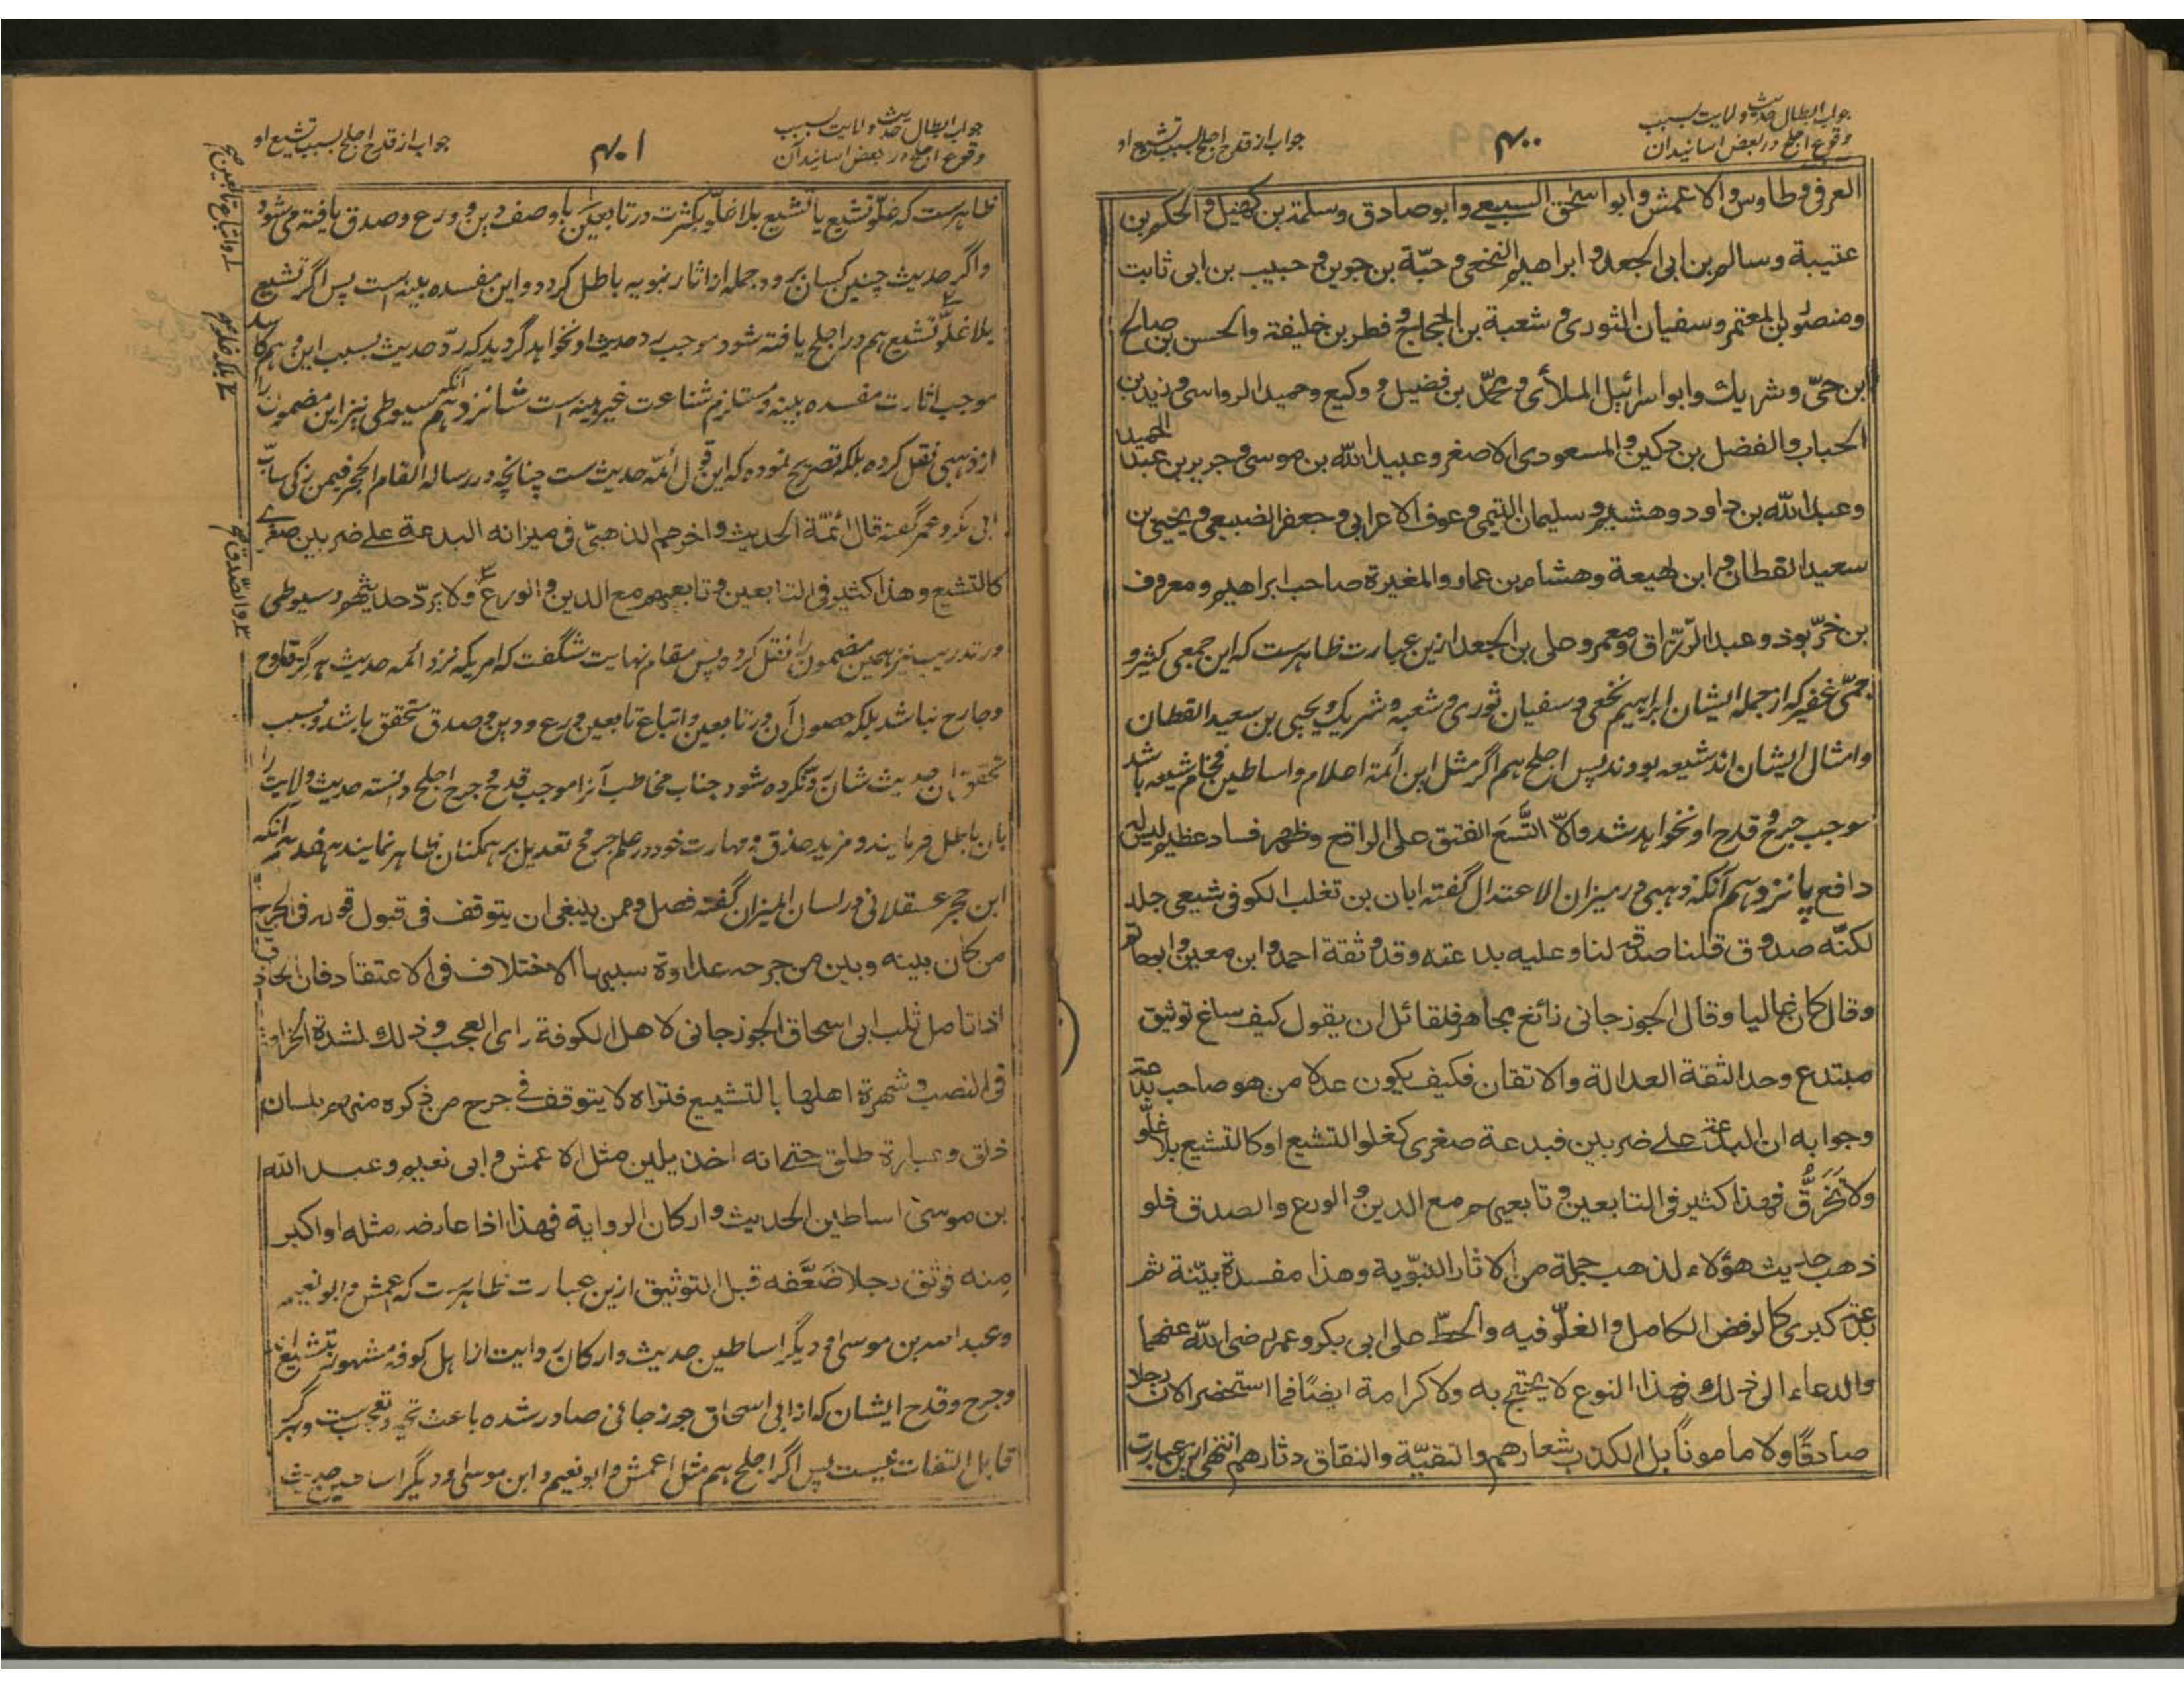 جواب ابطال حدیث ولایت بسبب
وقوع اجلح در بعض اسانید آن
۴۰۰
جواب از قدح اجلح بسبب تشیع او
العرفی وطاوس والاعمش وابو اسحق السبیعی وابو صادق وسلمة بن کهیل والحکم بن
عتیبة وسالم بن ابی الجعد وابراهیم النخعی وحبّة بن جوین وحبیب بن ابی ثابت
ومنصور بن المعتمر وسفیان الثوری وشعبة بن الحجاج وفطر بن خلیفة والحسن بن صالح
ابن حیّ وشریك وابو اسرائیل الملائی ومحمّد بن فضیل ووکیع وحمید الرواسی وزید بن
الحباب والفضل بن دکین والمسعودی الاصغر وعبید الله بن موسی وجریر بن عبد الحمید
وعبد الله بن داود وهشیم وسلیمان التیمی وعوف الاعرابی وجعفر الضبیعی ویحیی بن
سعید القطان وابن لهیعة وهشام بن عمار والمغیرة صاحب ابراهیم ومعروف
بن خرّبوذ وعبد الرّزاق ومعمر وعلی بن الجعد ازین عبارت ظاهرست که این جمعی کثیر و
جمّی غفیر که از جمله ایشان ابراهیم نخعی وسفیان ثوری وشعبه وشریك ویحیی بن سعید القطان
وامثال ایشان اند شیعه بودند پس اجلح هم اگر مثل این أئمّة اعلام واساطین فخام شیعه باشد
موجب جرح وقدح او نخواهد شد والّا اتّسَعَ الفتق علی الراقع وظهر فساد عظیم لیس له
دافع پانزدهم آنکه ذهبی در میزان الاعتدال گفته ابان بن تغلب الکوفی شیعی جلد
لکنّه صدوق قلنا صدقه لنا وعلیه بدعته وقد وثقه احمد وابن معین وابو حاتم
وقال کان غالیا وقال الجوزجانی زائغ مجاهر فلقائل ان یقول کیف ساغ توثیق
مبتدع وحد الثقة العدالة والاتقان فکیف یکون عدلا من هو صاحب بدعة
وجوابه ان البدعة علے ضربین فبدعة صغری کغلو التشیع او کالتشیع بلا غلّو
ولا تَحَرُّق فهذا کثیر فی التابعین وتابعیهم مع الدین والورع والصدق فلو
ذهب حدیث هؤلاء لذهب جملة من الاثار النبّویة وهذا مفسدة بیّنة ثم
بدعة کبری کالرفض الکامل والغلّو فیه والحطّ علی ابی بکر وعمر رضی الله عنهما
والدعاء الی ذلك فهذا النوع لا یحتج به ولا کرامة ایضًا فما استحضر الان رجلا
صادقًا ولا مامونًا بل الکذب شعارهم والتقیّة والنفاق دثارهم انتهی ازین عبارت
جواب ابطال حدیث ولایت بسبب
وقوع اجلح در بعض اسانید آن
۴۰۱
جواب از قدح اجلح بسبب تشیع او
ظاهرست که غلّو تشیع یا تشیع بلا غلّو بکثرت در تابعین با وصف دین وورع وصدق یافته می شود
واگر حدیث چنین کسان برود جمله از اثار نبویه باطل گردد واین مفسده بینه است پس اگر تشیع
بلا غلّو تشیع هم در اجلح یافته شود موجب رد حدیث او نخواهد گردید که ردّ حدیث بسبب این وهم کاسد
موجب اثارت مفسده بینه ومستلزم شناعت غیر هینه است شانزدهم آنکه سیوطی نیز این مضمون را
از ذهبی نقل کرده بلکه تصریح نموده که این قول أئمّه حدیث ست چنانچه در رساله القام الحجر فیمن زکی سابّ
ابی بکر وعمر گفته قال أئمّة الحدیث واخرهم الذهبیّ فی میزانه البدعة علے ضربین صغرے
کالتشیع وهذا کثیر فی التابعین وتابعیهم مع الدین والورع ولا یردّ حدیثهم وسیوطی
در تدریب نیز همین مضمون را نقل کرده پس مقام نهایت شگفت که امریکه نزد ائمه حدیث هرگز قادح
وجارح نباشد بلکه حصول آن در تابعین واتباع تابعین وورع ودین وصدق متحقق باشد وبسبب
تحقق آن حدیث شان رد نکرده شود جناب مخاطب آنرا موجب قدح وجرح اجلح دانسته حدیث ولایت را
بان باطل فرمایند ومزید حذق ومهارت خود در علم جرح وتعدیل بر همکنان ظاهر نمایند هفدهم آنکه
ابن حجر عسقلانی در لسان المیزان گفته فصل وممن ینبغی ان یتوقف فی قبول قوله فی الجرح
من کان بینه وبین من جرحه عداوة سببها الاختلاف فی الاعتقاد فان الحاذق
اذا تامل ثلب ابی اسحاق الجوزجانی لاهل الکوفة رای العجب وذلك لشدة انحرافه
فی النصب وشهرة اهلها بالتشیع فتراه لا یتوقف فے جرح من ذکره منهم بلسان
ذلق وعبارة طلق حتے انه اخذ یلین مثل الاعمش وابی نعیم وعبید الله
بن موسیٰ اساطین الحدیث وارکان الروایة فهذا اذا عارضه مثله او اکبر
مِنه فوثق رجلا ضَعَّفه قبل التوثیق ازین عبارت ظاهرست که اعمش وابو نعیم
وعبید الله بن موسی ودیگر اساطین حدیث وارکان روایت از اهل کوفه مشهور بتشیع اند
وجرح وقدح ایشان که از ابی اسحاق جوزجانی صادر شده باعث تحیر وتعجب ست وهرگز
قابل التفات نیست پس اگر اجلح هم مثل اعمش وابو نعیم وابن موسی ودیگر اساطین حدیث
۱؎ واتباع تابعین صح
۲؎ بلکه غلو صح
۳؎ والصّدق صح